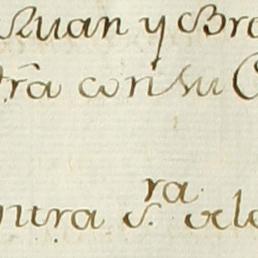 Juan y Bra
tr̃a con su C
ntra S.ra de